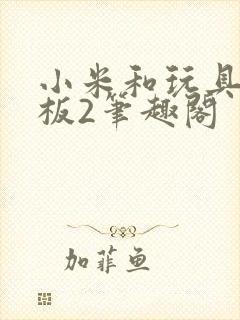 小米和玩具
板2筆趣閣
加菲鱼